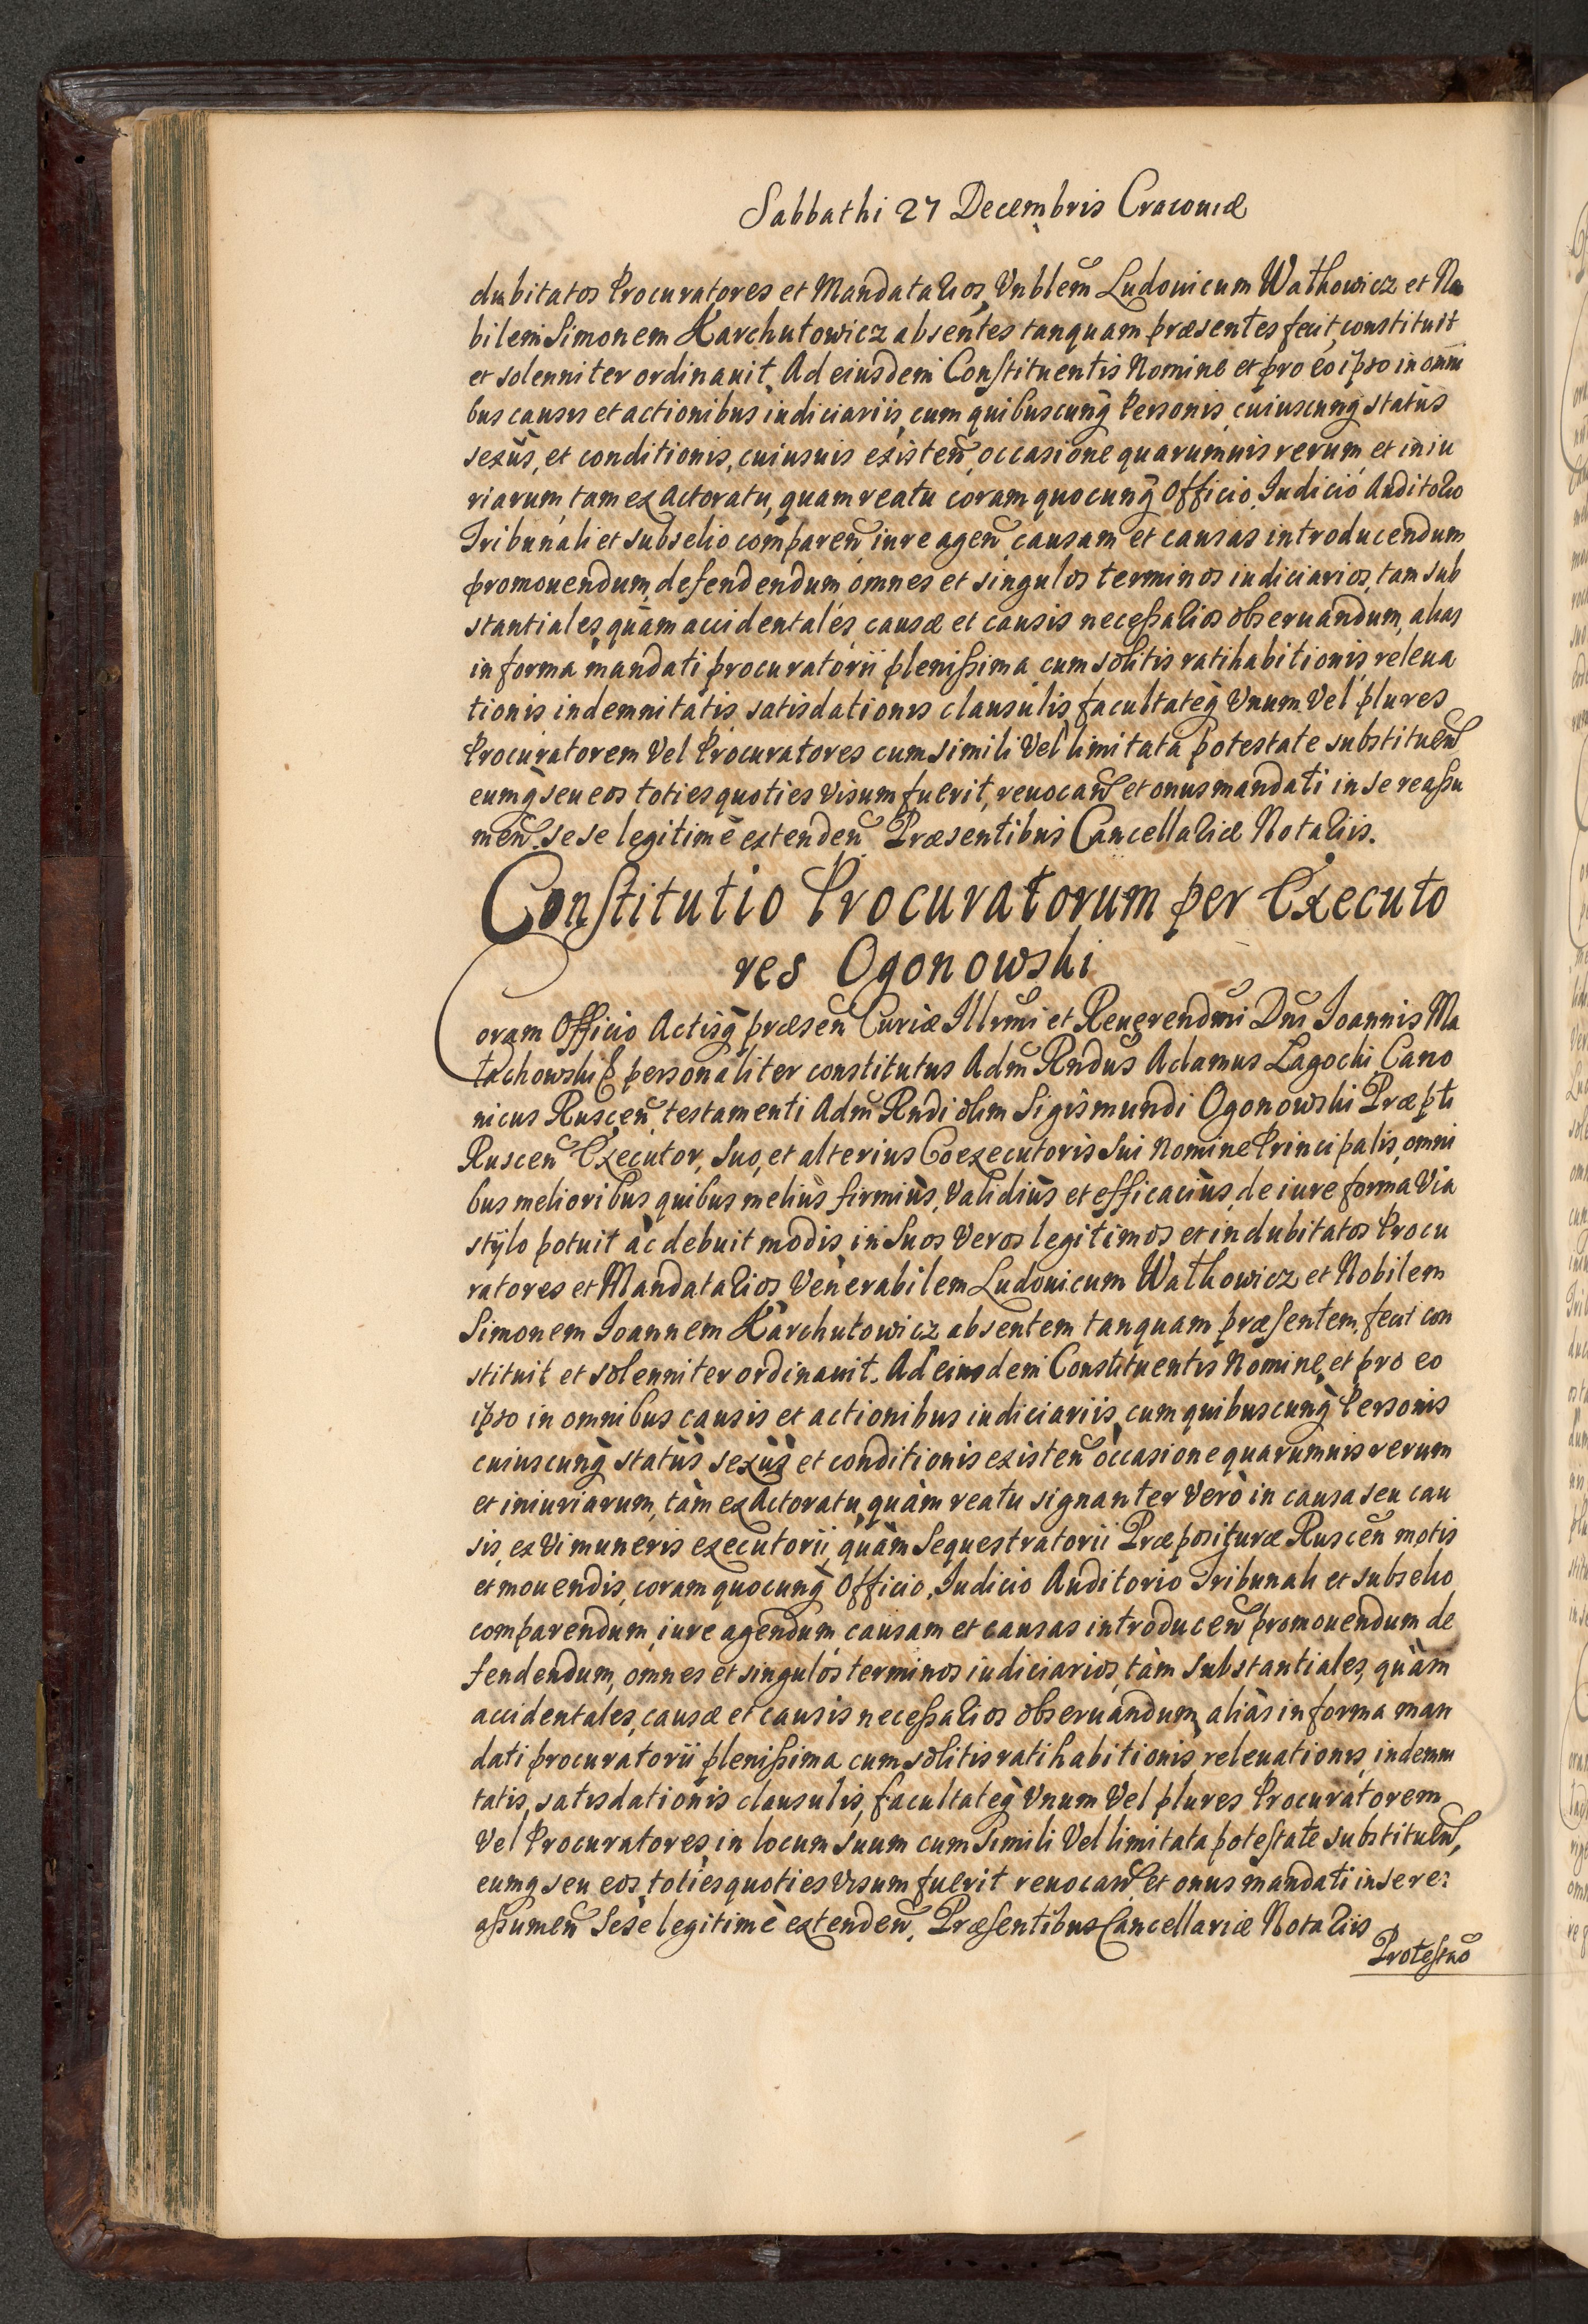 Sabbathi 27 Decembris Cracouiæ
dubitatos Procuratores et Mandatarios, Vnblem̃ Ludouicum Wathowicz et No
bilem Simonem Karchutowicz absentes tanquam præsentes fecit, constituit
et solenniter ordinauit. Ad eiusdem Constituentis Nomine et pro eo ipso in omni
bus causis et actionibus iudiciariis, cum quibuscunq̃ Personis, cuiuscunq̃ statûs
sexûs, et conditionis, cuiusuis existeñ, occasione quarumuis rerum, et iniu
riarum, tam ex Actoratu, quam reatu coram quocunq̃ Officio, Iudicio, Auditorio
Tribunali et subselio compareñ iure ageñ causam et causas introducendum
promouendum, defendendum omnes et singulos terminos iudiciarios, tam sub
stantiales, quàm accidentales, causæ et causis necessarios obseruandum, alias
in forma mandati procuratorii plenissima, cum solitis ratihabitionis, releua
tionis indemnitatis, satisdationis clausulis, facultateq̃ Vnum Vel plures
Procuratorem Vel Procuratores cum simili Vel limitata potestate substitueñ
eumq̃ seu eos, toties quoties Visum fuerit, reuocañ et onus mandati in se reassu
meñ. sese legitimè extendeñ Præsentibus Cancellariæ Notariis.
Constitutio Procuratorum per Executo
res Ogonowski
Coram Officio Actisq̃ præseñ Curiæ Illrm̃i et Reuerendm̃i Dñi Ioannis Ma
łachowski personaliter constitutus Adm̃ Rndus Adamus Łagocki Cano
nicus Rusceñ, testamenti Adm̃ Rndi olim Sigismundi Ogonowski Præpti
Rusceñ Executor, Suo, et alterius Coexecutoris Sui Nomine Principalis, omni
bus melioribus quibus meliùs firmiùs, Validiùs et efficaciùs, de iure forma Via
stylo potuit ac debuit modis, in Suos Veros legitimos et indubitatos Procu
ratores et Mandatarios Venerabilem Ludouicum Wathowicz et Nobilem
Simonem Ioannem Karchutowicz absentem tanquam præsentem, fecit con
stituit et solenniter ordinauit. Ad eiusdem Constituentis Nomine, et pro eo
ipso in omnibus causis et actionibus iudiciariis, cum quibuscunq̃ Personis
cuiuscunq̃ statûs sexûs et conditionis existeñ occasione quarumuis rerum
et iniuriarum, tàm ex Actoratu, quàm reatu signanter Verò in causa seu cau
sis, ex Vi muneris executorii, quàm Sequestratorii Præposituræ Rusceñ motis
et mouendis, coram quocunq̃ Officio, Iudicio Auditorio Tribunali et subselio,
comparendum, iure agendum causam et causas introduceñ promouendum de
fendendum, omnes et singulos terminos iudiciarios, tàm substantiales, quàm
accidentales, causæ et causis necessarios obseruandum, aliàs in forma man
dati procuratorii plenissima cum solitis ratihabitionis, releuationis, indemni
tatis, satisdationis clausulis, facultateq̃ Vnum Vel plures Procuratorem
Vel Procuratores, in locum suum cum simili Vel limitata potestate substitueñ,
eumq̃ seu eos, toties quoties Visum fuerit reuocañ, et onus mandati in se re:
assumeñ Sese legitimè extendeñ. Præsentibus Cancellariæ Notariis
Protestaõ